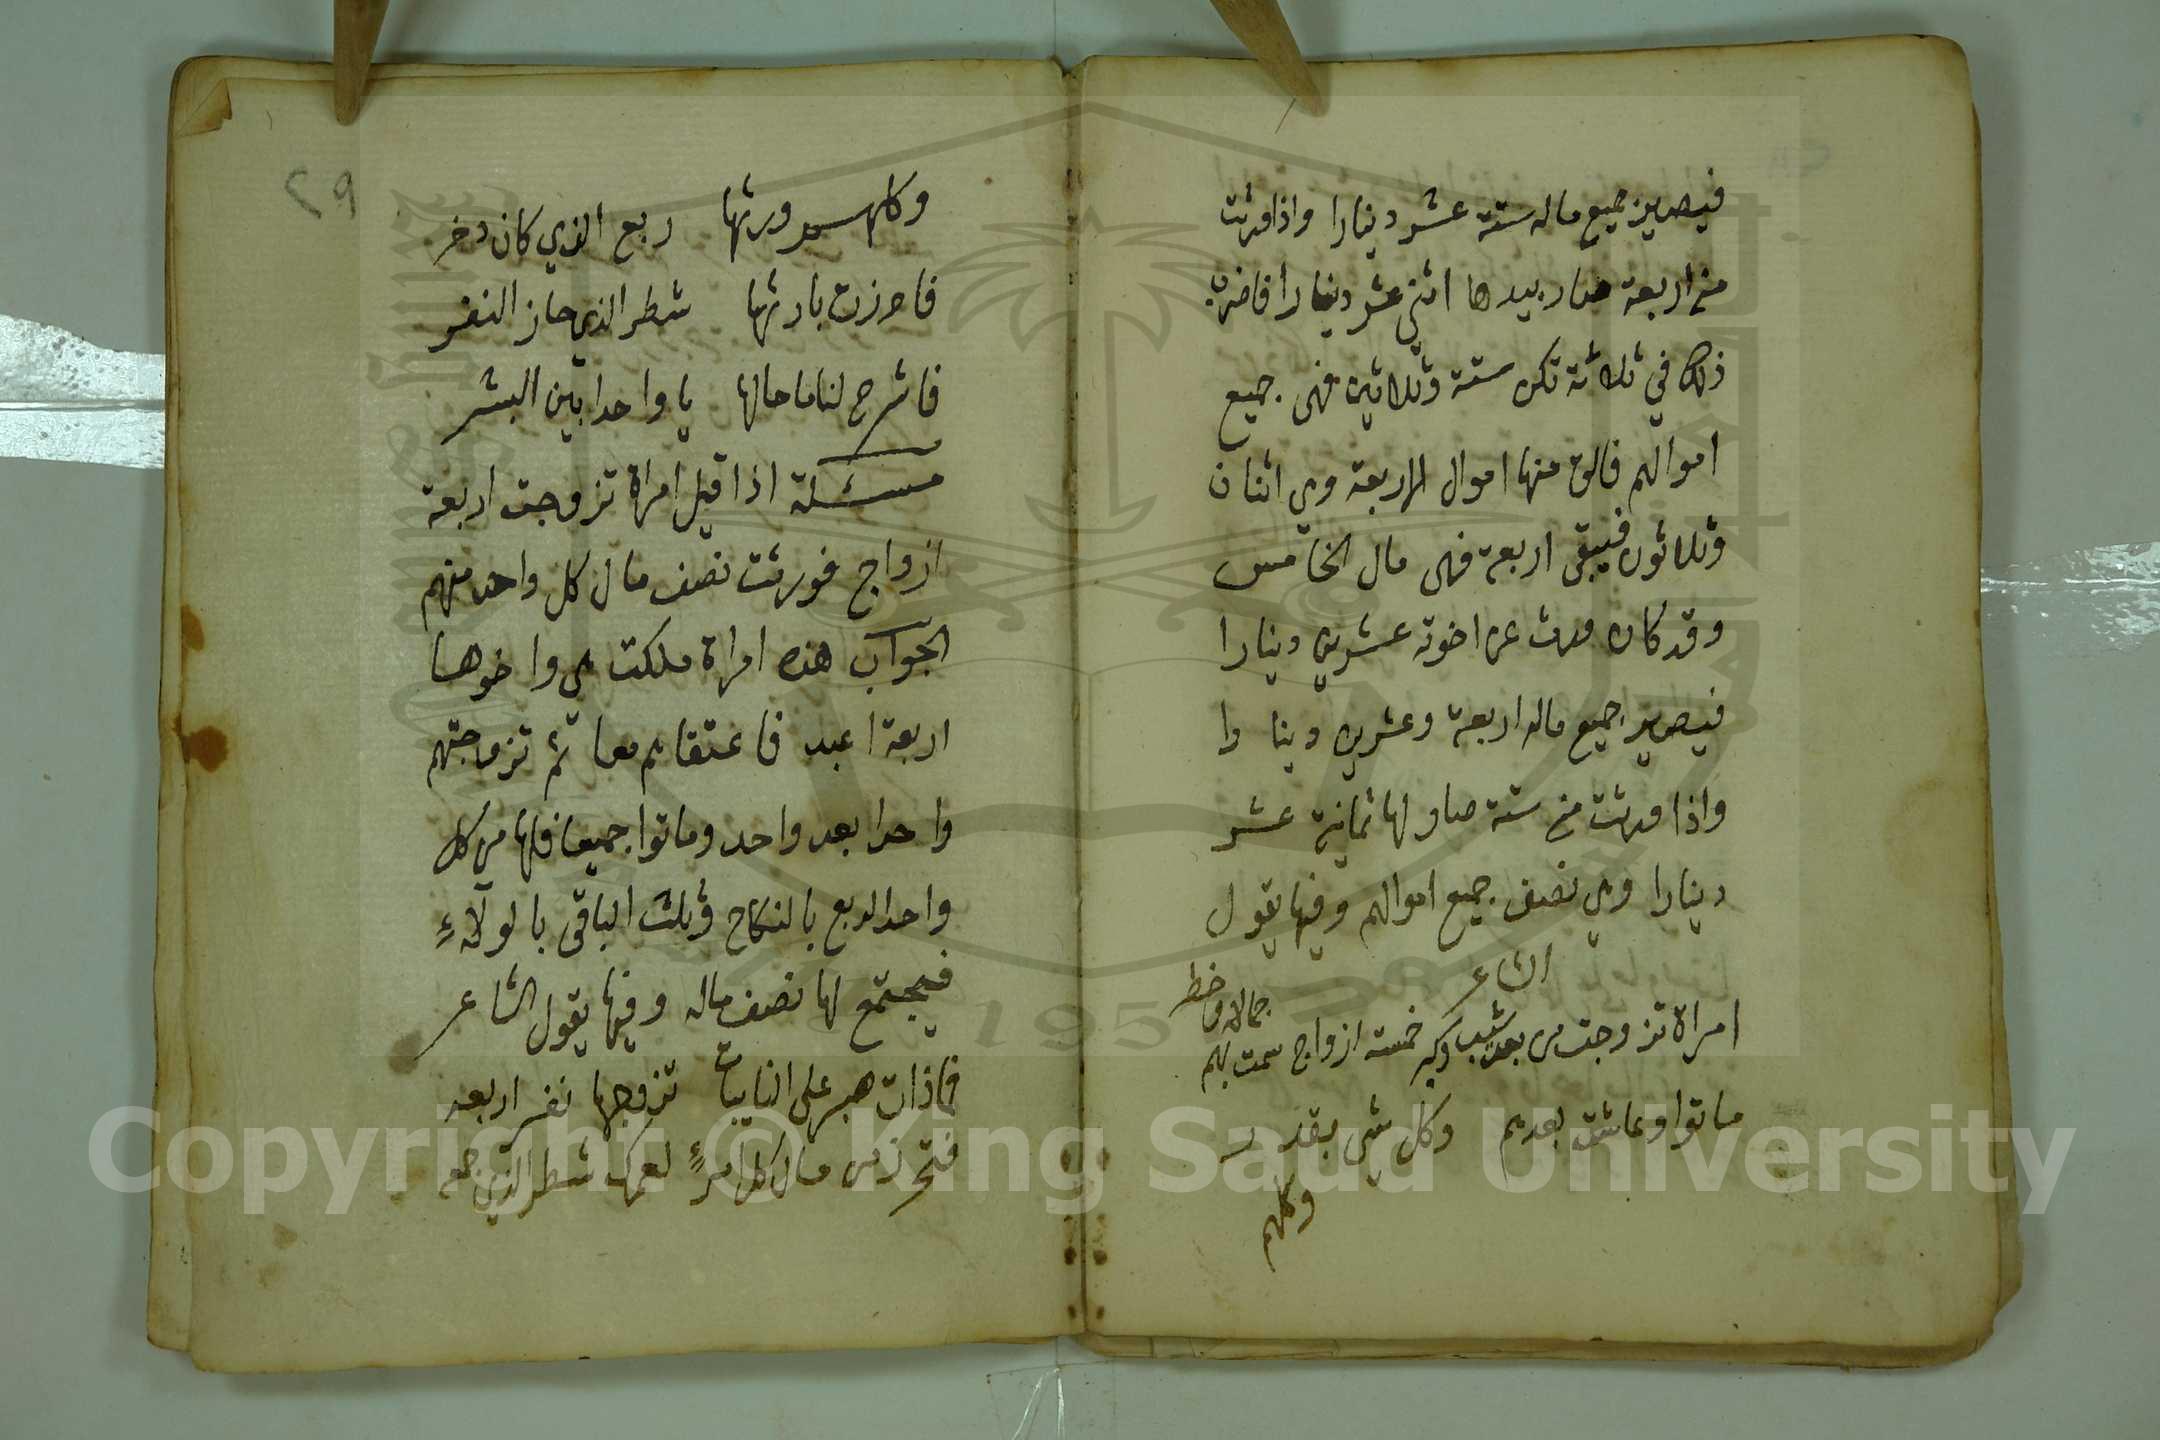 فيصير جميع ماله ستة عشر دينارا واذا ورثت
من اربعة صار بيدها اثني عشر دينارا فاضرب
ذلك في ثلاثة تكن ستة وثلاثين فهى جميع
اموالهم فالق منها اموال الاربعة وهي اثنان
وثلاثون فيبقى اربعة فهى مال الخامس
وقد كان ورث عن اخوته عشرين دينارا
فيصير جميع ماله اربعة وعشرين دينا را
واذا ورثت من ستة صار لها ثمانية عشر
دينارا وهي نصف جميع اموالهم وفيها يقول
الشاعر
امراة تزوجت من بعد شيب وكبر خمسة ازواج سمت بهم جمالا وخطر
ماتوا وعاشت بعدهم وكل شى بقدر
وكلهم
٢٩
وكلهم ورثها ربع الذي كان دخر
فاحرزت بارثها شطر الذي حاز النفر
فاشرح لنا ما حالها يا واحدا بين البشر
مسئلة اذا قيل امراة تزوجت اربعة
ازواج فورثت نصف مال كل واحد منهم
الجواب هذه امراة ملكت هي واخوها
اربعة اعبد فاعتقاهم معا ثم تزوجتهم
واحدا بعد واحد وماتوا جميعا فلها من كل
واحد الربع بالنكاح وثلث الباقى بالولاء
فيجتمع لها نصف ماله وفيها يقول الشاعر
فما ذات صبر على النايبات تزوجها نفر اربعه
من مال كل امرءٍ لعمرك شطر الذي جمعه
Copyright © King Saud University
195